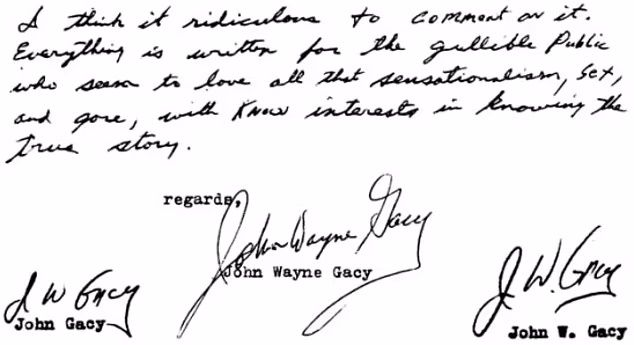 I think it ridiculous to comment on it.
Everything is written for the gullible Public
who seem to love all that sensationalism, sex,
and gore, with Know interests in knowing the
true story.
regards,
John Wayne Gacy
John Wayne Gacy
J W Gacy
John Gacy
J. W. Gacy
John W. Gacy